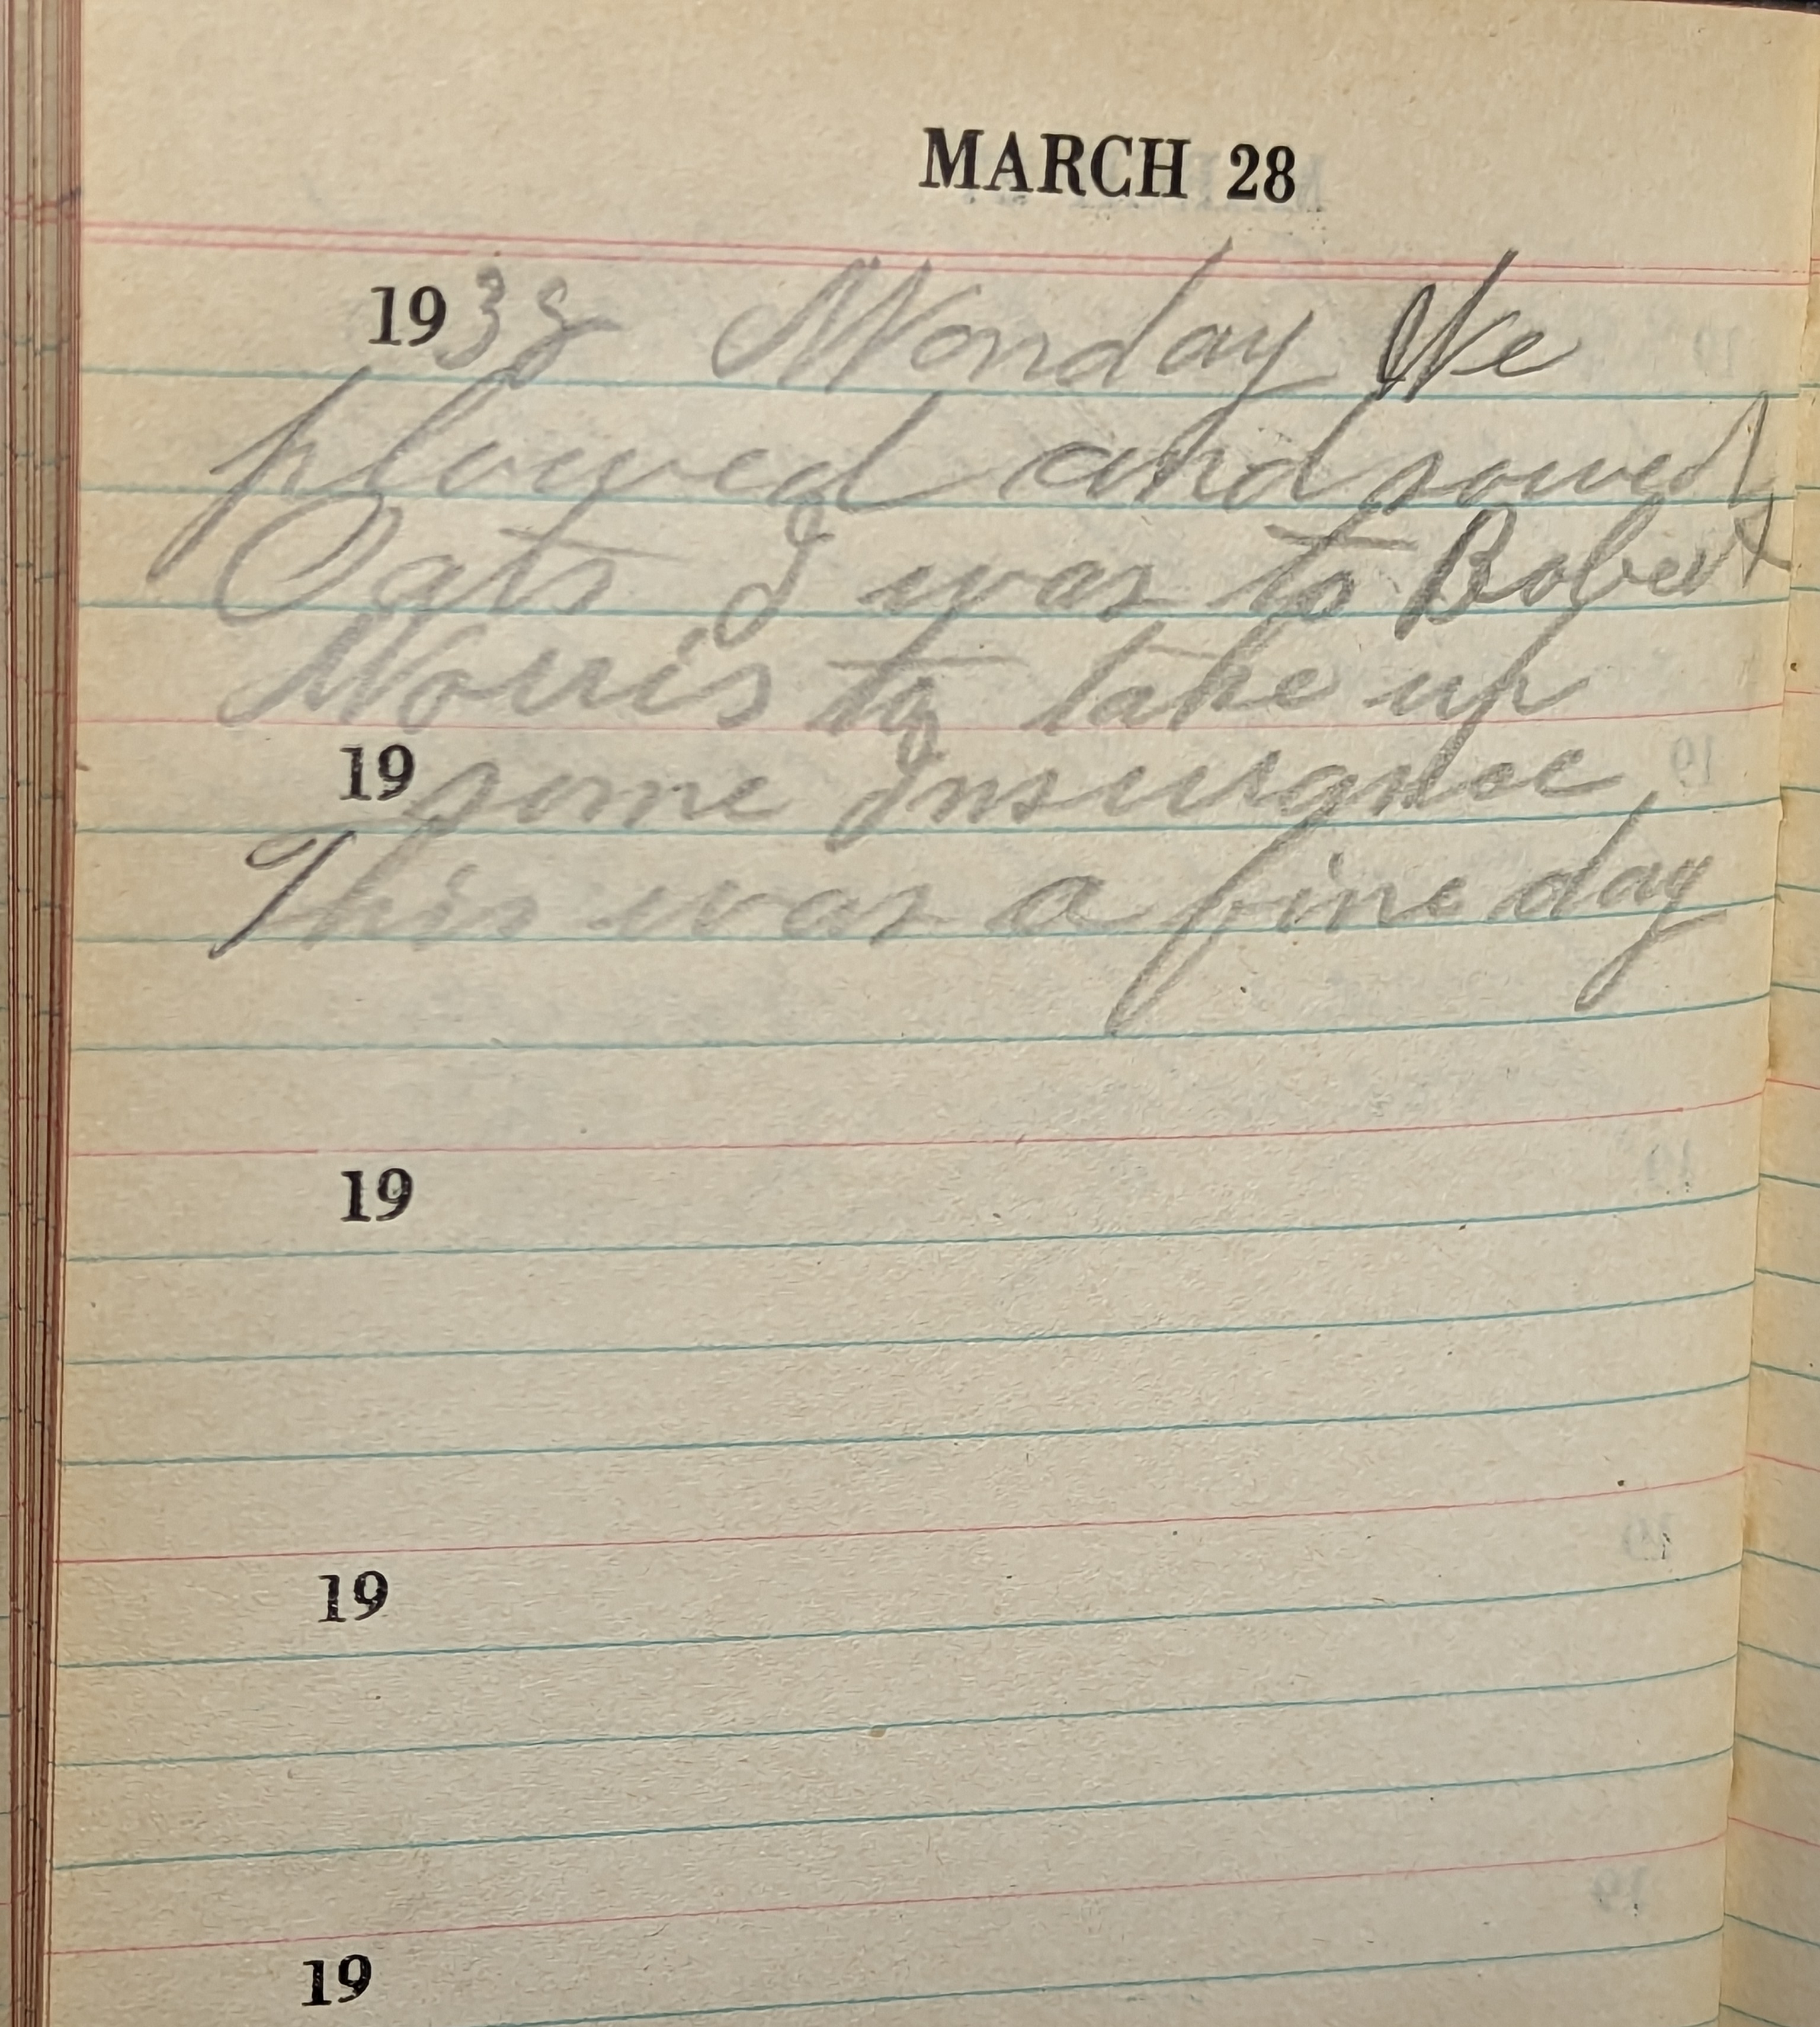 MARCH 28
1938 Monday We
plowed and sowed
Oats I was to Robert
Norris to take up
19 some Insurance
This was a fine day
19
19
19